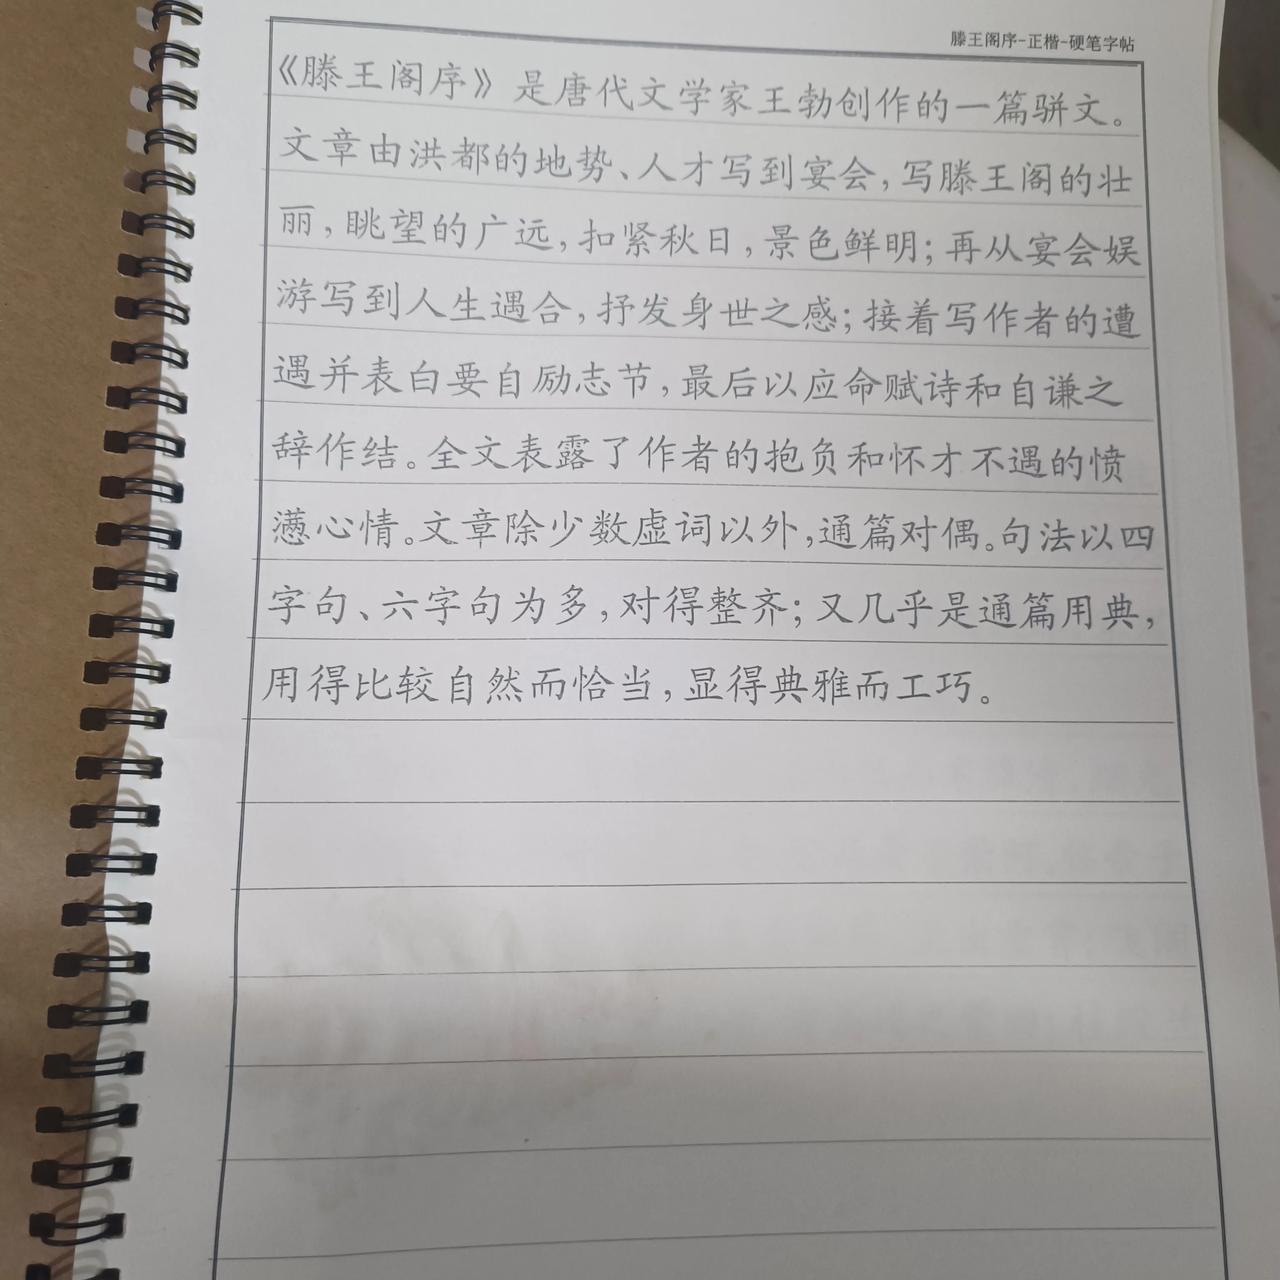 滕王阁序-正楷-硬笔字帖
《滕王阁序》是唐代文学家王勃创作的一篇骈文。
文章由洪都的地势、人才写到宴会,写滕王阁的壮
丽,眺望的广远,扣紧秋日,景色鲜明;再从宴会娱
游写到人生遇合,抒发身世之感;接着写作者的遭
遇并表白要自励志节,最后以应命赋诗和自谦之
辞作结。全文表露了作者的抱负和怀才不遇的愤
懑心情。文章除少数虚词以外,通篇对偶。句法以四
字句、六字句为多,对得整齐;又几乎是通篇用典,
用得比较自然而恰当,显得典雅而工巧。